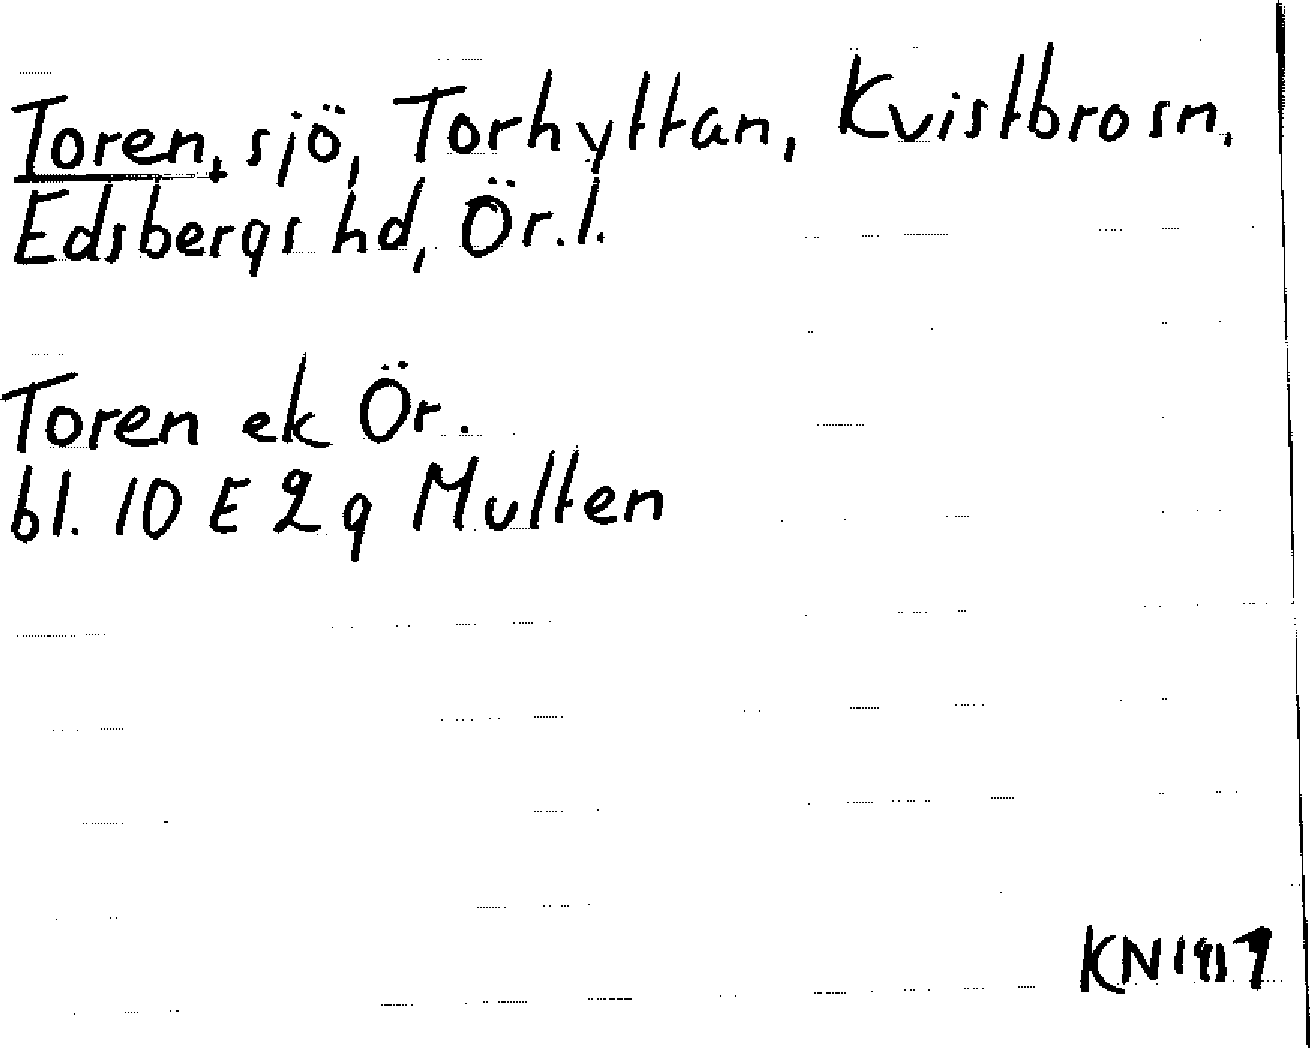 Toren, sjö, Torhyttan, Kvistbro sn,
Edsbergs hd, Ör.l.
Toren ek Ör.
bl. 10 E 2 g Multen